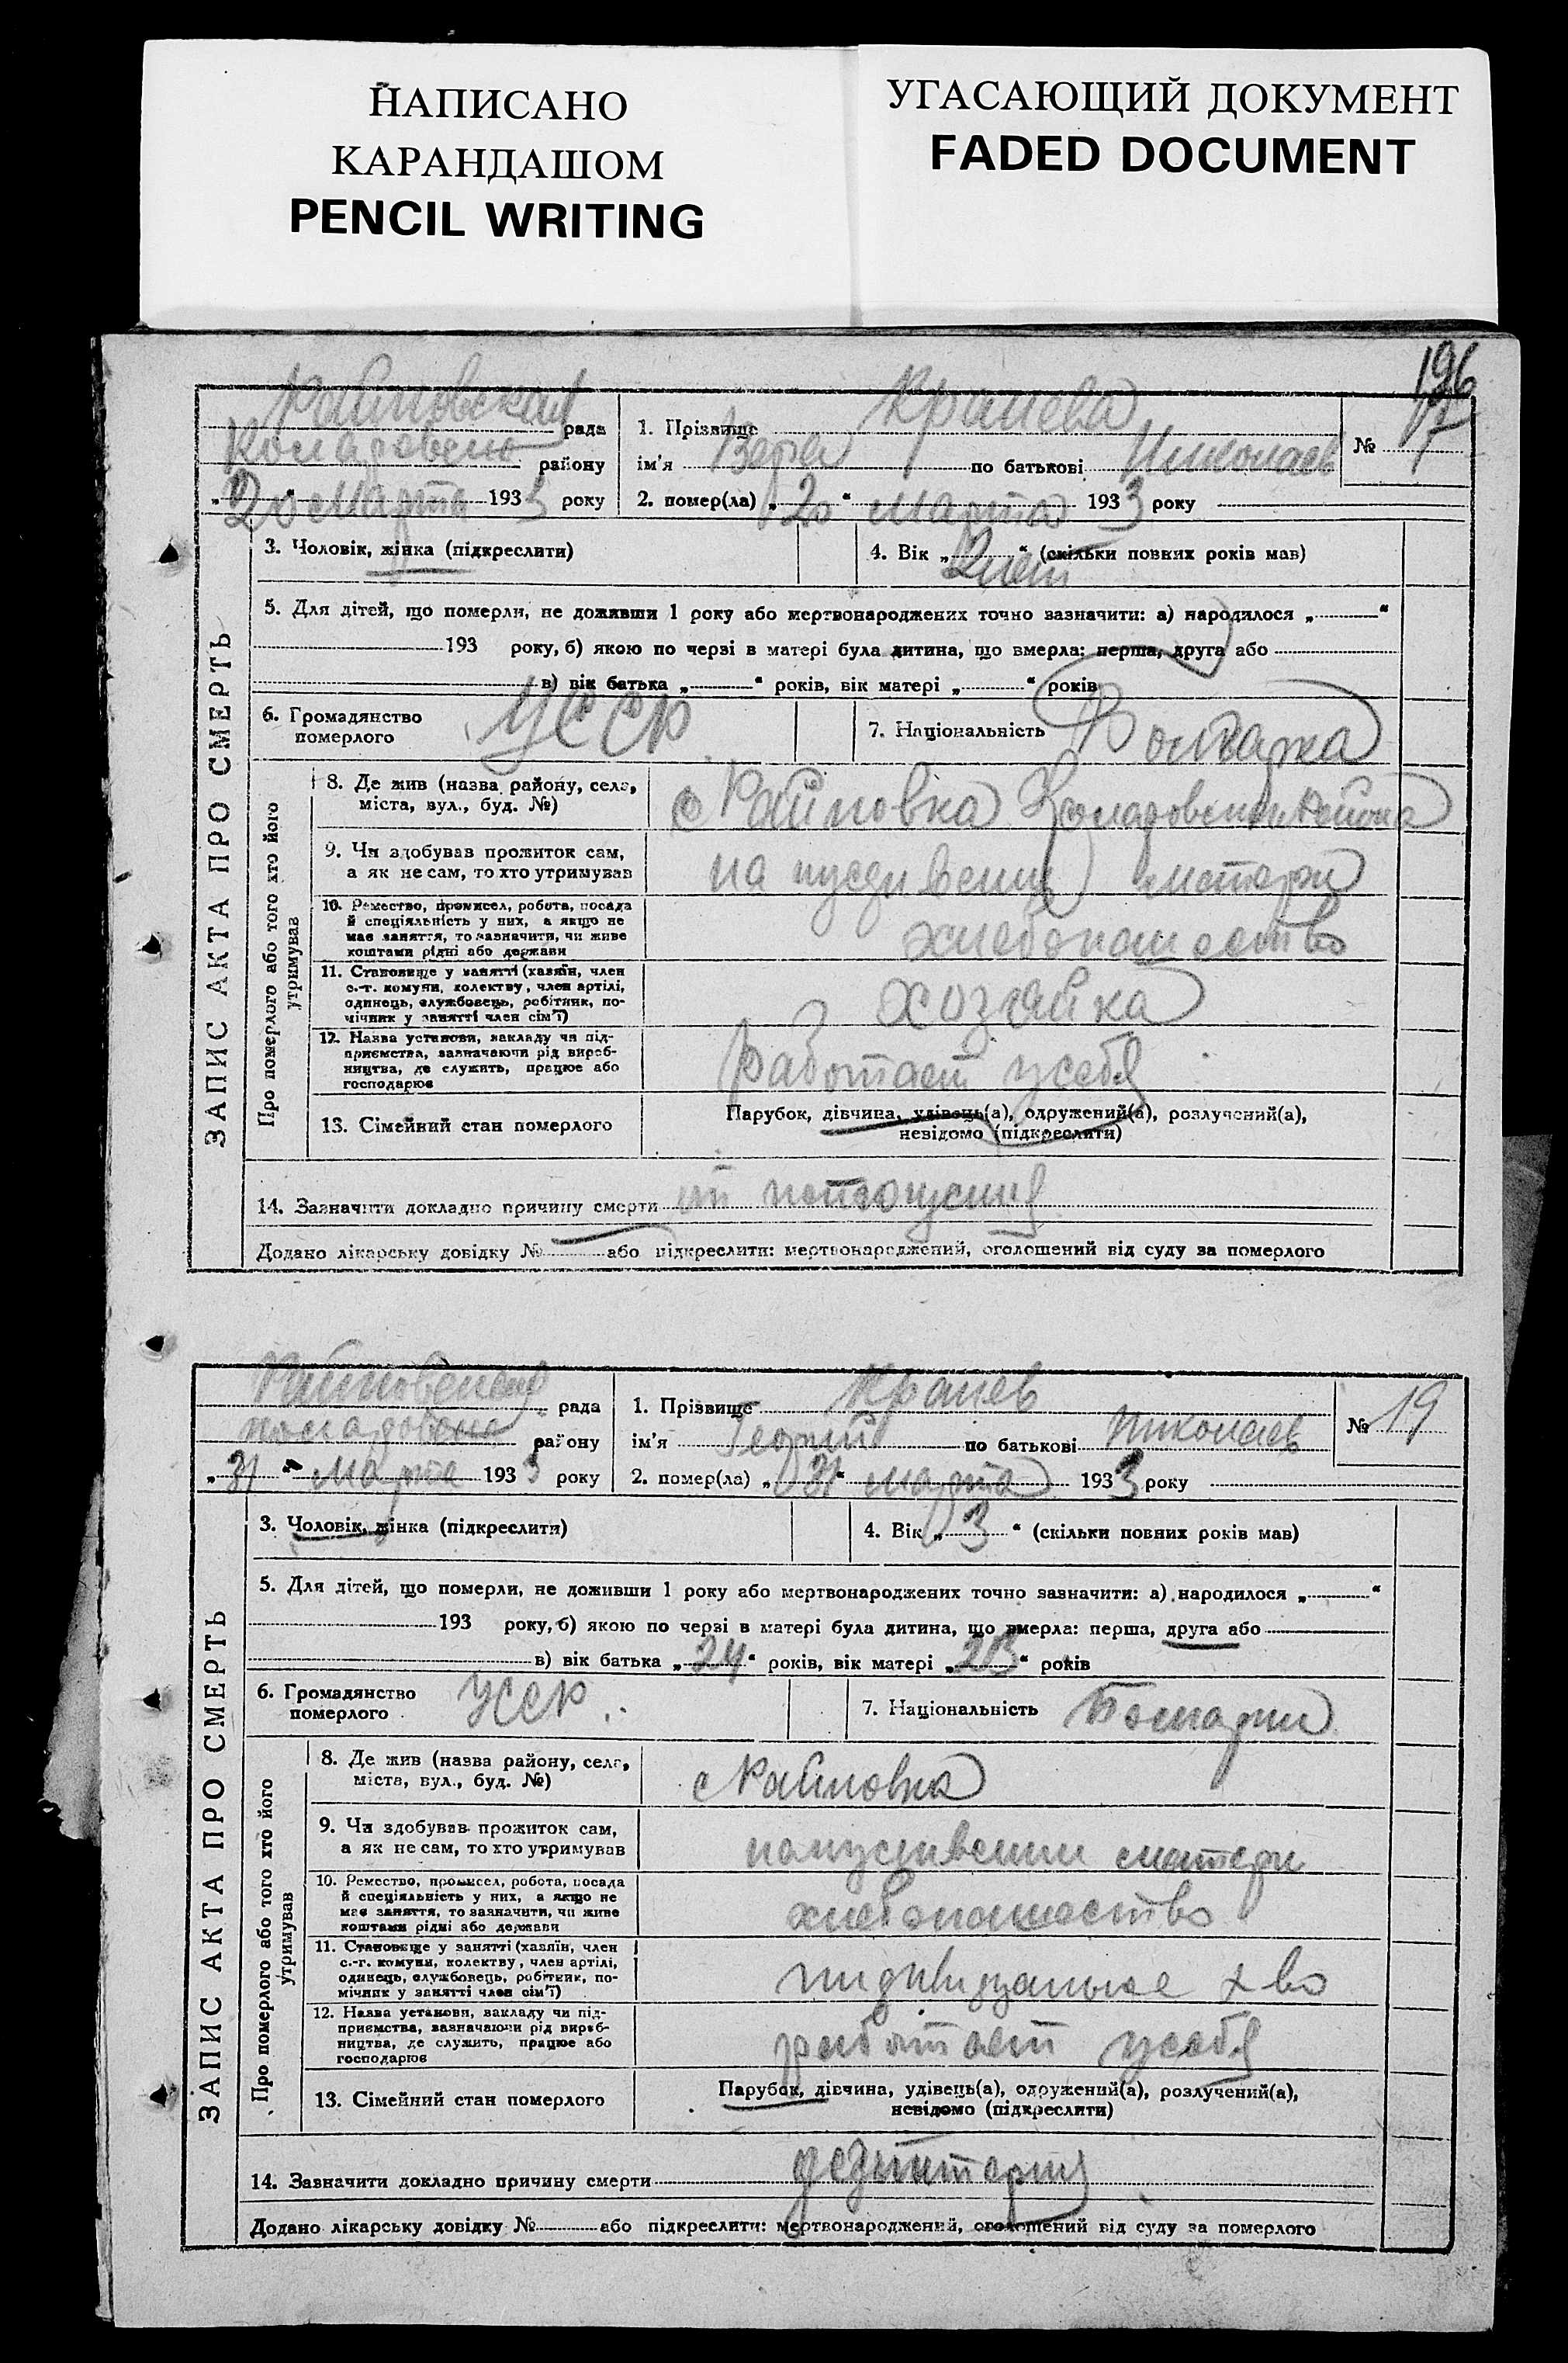 НАПИСАНО
КАРАНДАШОМ
PENCIL WRITING
УГАСАЮЩИЙ ДОКУМЕНТ
FADED DOCUMENT
196
ЗАПИС АКТА ПРО СМЕРТЬ
рада
району
„20 марта 1933 року
1. Прізвище
ім'я Вера по батькові Николаев
2. помер(ла) „20“ марта 1933 року
№ 17
3. Чоловік, жінка (підкреслити)
4. Вік „2 лет“ (скільки повних років мав)
5. Для дітей, що померли, не доживши 1 року або мертвонароджених точно зазначити: а) народилося „ “
193 року, б) якою по черзі в матері була дитина, що вмерла: перша, друга або
в) вік батька „ “ років, вік матері „ “ років
6. Громадянство померлого УССР
7. Національність
Про померлого або того хто його утримував
8. Де жив (назва району, села,
міста, вул., буд. №)
с Райновка района
9. Чи здобував прожиток сам,
а як не сам, то хто утримував
на матери
10. Ремество, промисел, робота, посада
й спеціяльність у них, а якщо не
має заняття, то зазначити, чи живе
коштами рідні або держави
хлебопашество
11. Становище у занятті (хазяїн, член
с.-г. комуни, колективу, член артілі,
одинець, службовець, робітник, по-
мічник у занятті член сім'ї)
хозяйка
12. Назва установи, закладу чи під-
приємства, зазначаючи рід вироб-
ництва, де служить, працює або
господарює
работает у себя
13. Сімейний стан померлого
Парубок, дівчина, удівець(а), одружений(а), розлучений(а),
невідомо (підкреслити)
14. Зазначити докладно причину смерти от
Додано лікарську довідку № або підкреслити: мертвонароджений, оголошений від суду за померлого
ЗАПИС АКТА ПРО СМЕРТЬ
рада
району
„31“ марта 1933 року
1. Прізвище
ім'я Георгий по батькові Николаев
2. помер(ла) „31“ марта 1933 року
№ 19
3. Чоловік, жінка (підкреслити)
4. Вік „3“ (скільки повних років мав)
5. Для дітей, що померли, не доживши 1 року або мертвонароджених точно зазначити: а) народилося „ “
193 року, б) якою по черзі в матері була дитина, що вмерла: перша, друга або
в) вік батька „24“ років, вік матері „23“ років
6. Громадянство померлого УССР
7. Національність
Про померлого або того хто його утримував
8. Де жив (назва району, села,
міста, вул., буд. №)
с Райновка
9. Чи здобував прожиток сам,
а як не сам, то хто утримував
матери
10. Ремество, промисел, робота, посада
й спеціяльність у них, а якщо не
має заняття, то зазначити, чи живе
коштами рідні або держави
хлебопашество
11. Становище у занятті (хазяїн, член
с.-г. комуни, колективу, член артілі,
одинець, службовець, робітник, по-
мічник у занятті член сім'ї)
х во
12. Назва установи, закладу чи під-
приємства, зазначаючи рід вироб-
ництва, де служить, працює або
господарює
работает у себя
13. Сімейний стан померлого
Парубок, дівчина, удівець(а), одружений(а), розлучений(а),
невідомо (підкреслити)
14. Зазначити докладно причину смерти
Додано лікарську довідку № або підкреслити: мертвонароджений, оголошений від суду за померлого